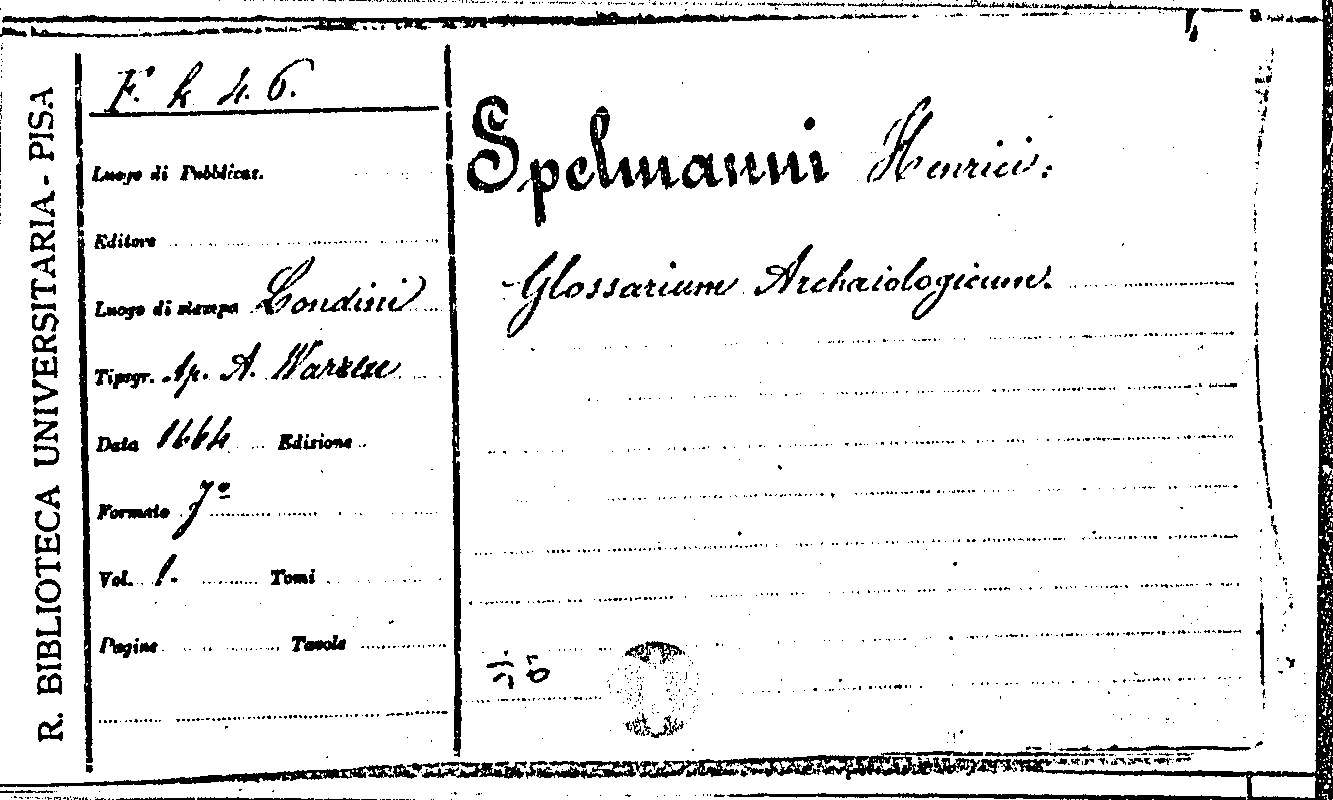 R. BIBLIOTECA UNIVERSITARIA - PISA
F. k 4. 6.
Luogo di Pubblicaz.
Editore
Luogo di stampa Londini
Tipogr. Ap. A. Warren
Data 1664 Edizione
Formato fº
Vol. 1. Tomi
Pagine Tavole
Spelmanni Henrici:
Glossarium Archaiologicum.